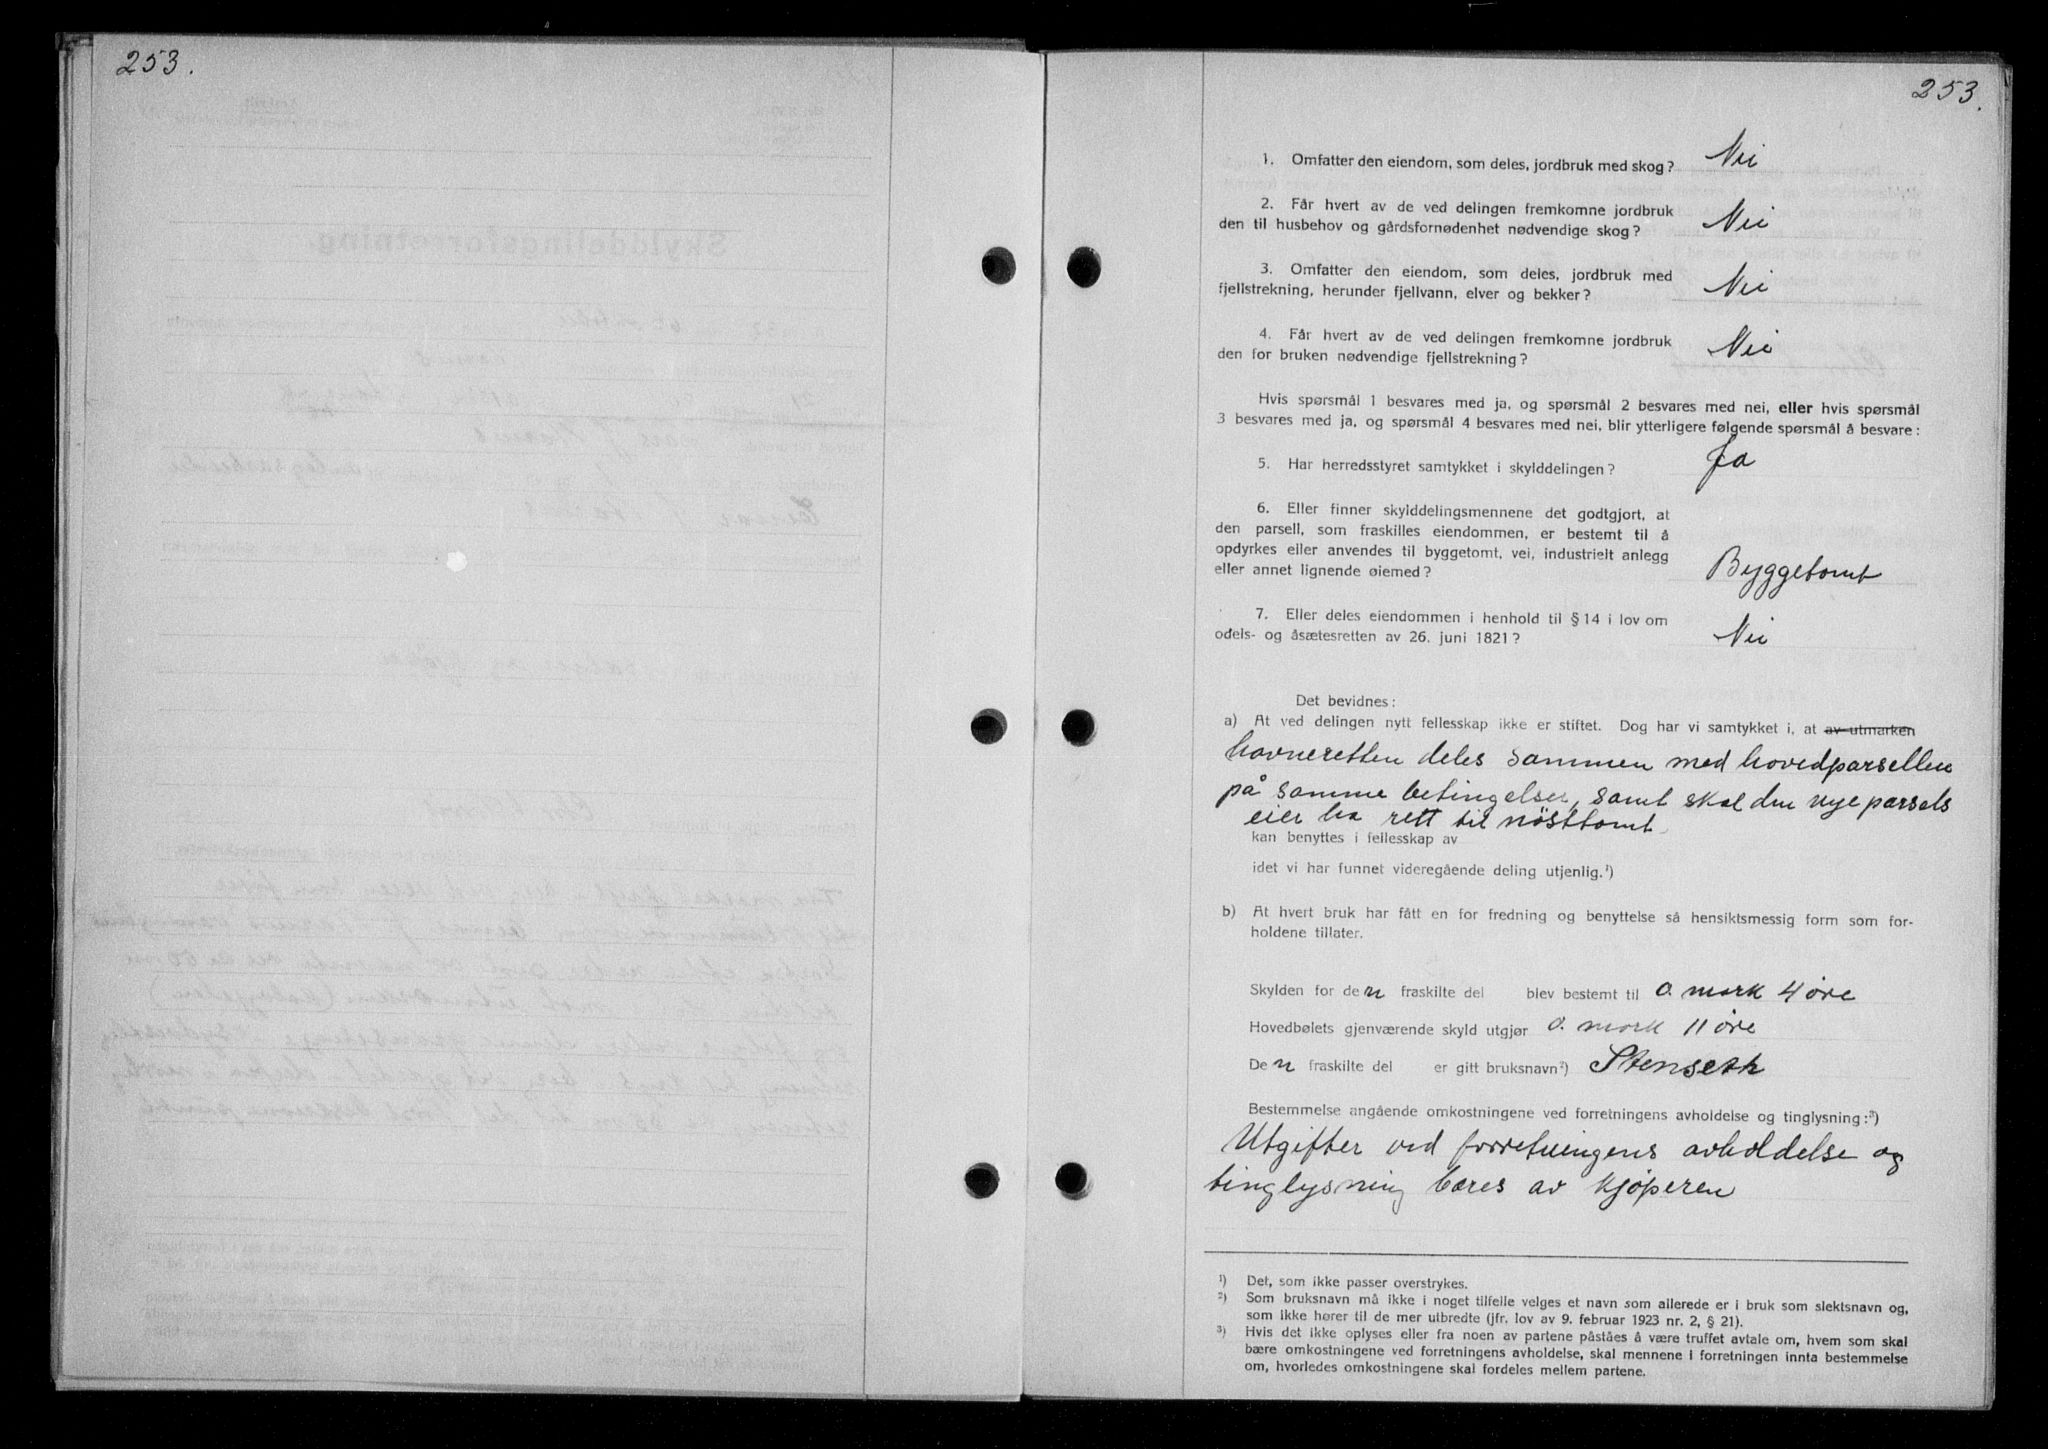 253.
253.
1. Omfatter den eiendom, som deles, jordbruk med skog? Nei
2. Får hvert av de ved delingen fremkomne jordbruk
den til husbehov og gårdsfornødenhet nødvendige skog? Nei
3. Omfatter den eiendom, som deles, jordbruk med
fjellstrekning, herunder fjellvann, elver og bekker? Nei
4. Får hvert av de ved delingen fremkomne jordbruk
den for bruken nødvendige fjellstrekning? Nei
Hvis spørsmål 1 besvares med ja, og spørsmål 2 besvares med nei, eller hvis spørsmål
3 besvares med ja, og spørsmål 4 besvares med nei, blir ytterligere følgende spørsmål å besvare:
5. Har herredsstyret samtykket i skylddelingen? Ja
6. Eller finner skylddelingsmennene det godtgjort, at
den parsell, som fraskilles eiendommen, er bestemt til å
opdyrkes eller anvendes til byggetomt, vei, industrielt anlegg
eller annet lignende øiemed? Byggetomt
7. Eller deles eiendommen i henhold til § 14 i lov om
odels- og åsætesretten av 26. juni 1821? Nei
Det bevidnes:
a) At ved delingen nytt fellesskap ikke er stiftet. Dog har vi samtykket i, at av utmarken
havneretten deles sammen med hovedparsellen
på samme betingelser, samt skal den nye parsels
eier ha rett til nösttomt.
kan benyttes i fellesskap av
idet vi har funnet videregående deling utjenlig.¹)
b) At hvert bruk har fått en for fredning og benyttelse så hensiktsmessig form som for-
holdene tillater.
Skylden for den fraskilte del blev bestemt til 0 mark 4 øre
Hovedbølets gjenværende skyld utgjør 0. mork 11 øre
Den fraskilte del er gitt bruksnavn²) Stenseth
Bestemmelse angående omkostningene ved forretningens avholdelse og tinglysning:³)
Utgifter ved forretningens avholdelse og
tinglysning bæres av kjøperen
¹) Det, som ikke passer overstrykes.
²) Som bruksnavn må ikke i noget tilfelle velges et navn som allerede er i bruk som slektsnavn og,
som ikke hører til de mer utbredte (jfr. lov av 9. februar 1923 nr. 2, § 21).
³) Hvis det ikke oplyses eller fra noen av partene påståes å være truffet avtale om, hvem som skal
bære omkostningene ved forretningens avholdelse, skal mennene i forretningen innta bestemmelse
om, hvorledes omkostningene skal fordeles mellem partene.